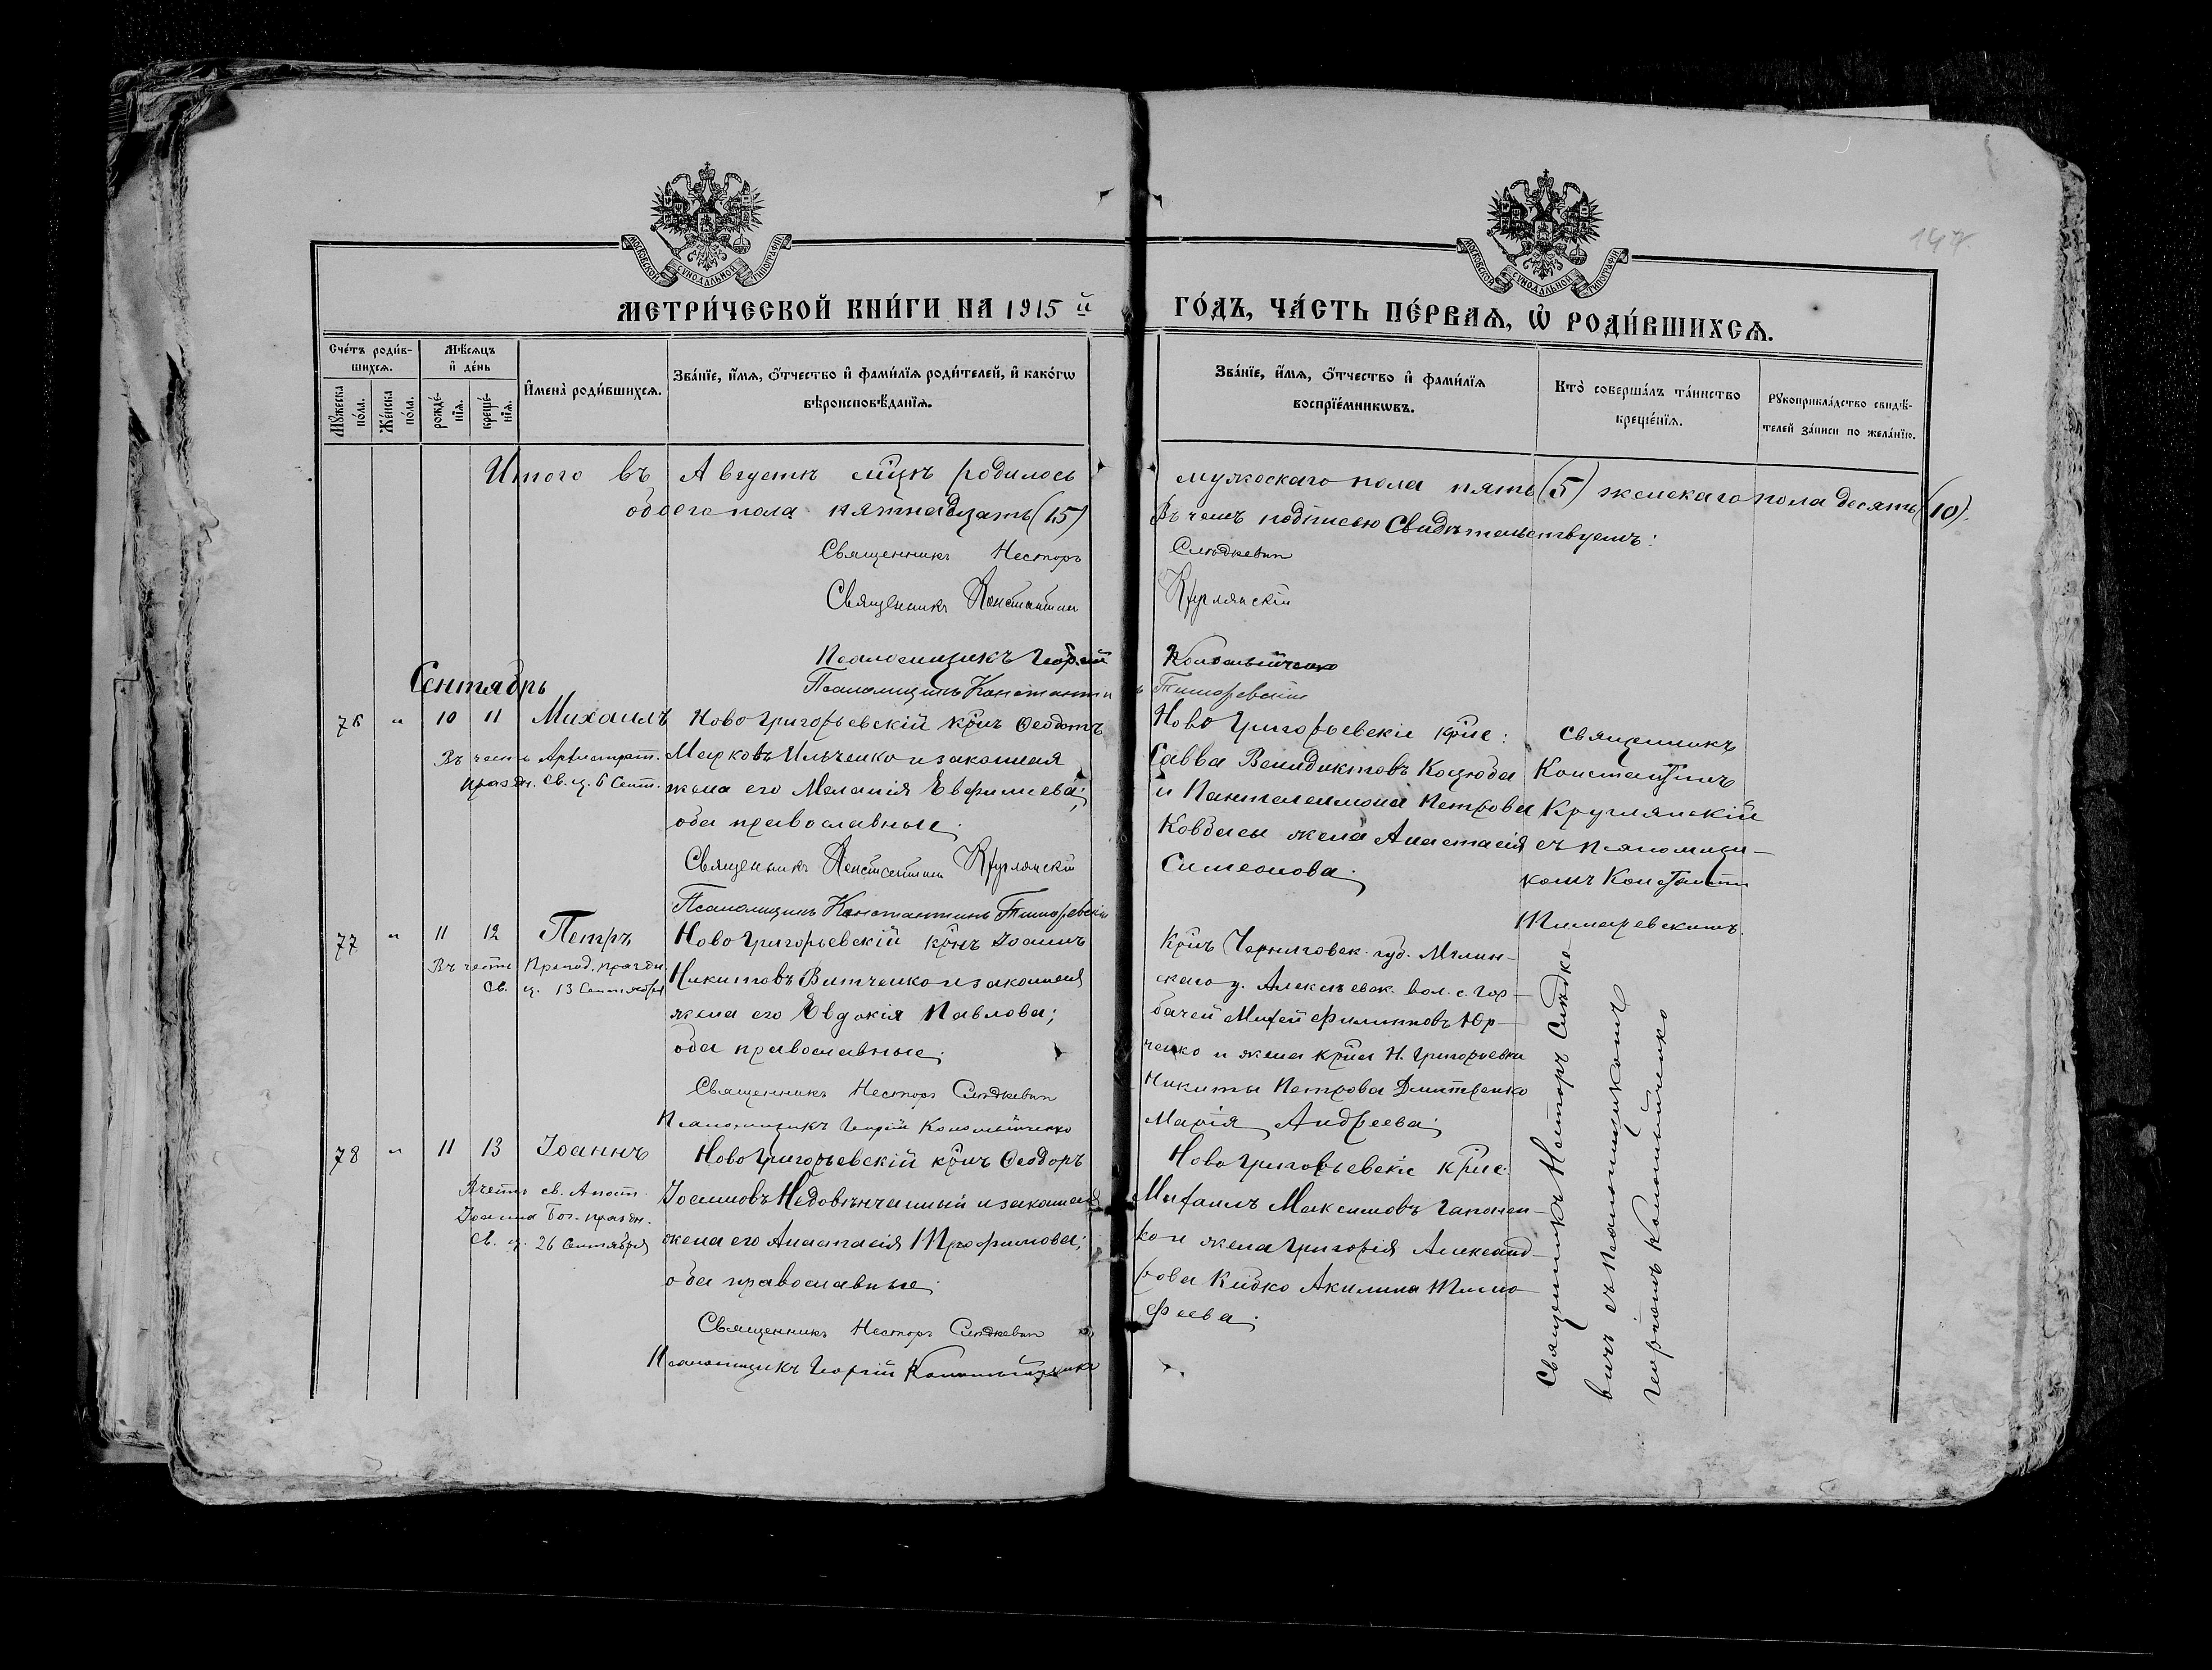 147
МОСКОВСКОЙ СУНОДАЛЬНОЙ ТИПОГРАФИИ
МОСКОВСКОЙ СУНОДАЛЬНОЙ ТИПОГРАФИИ
МЕТРИ́ЧЕСКОЙ КНИ́ГИ НА 1915 й
ГО́ДЪ, ЧА́СТЬ ПЕ́РВАѦ, Ѡ РОДИ́ВШИХСѦ.
Сче́тъ роди́в-
шихсѧ.
Мꙋжеска по́ла.
Же́нска по́ла.
Мѣ́сѧцъ
и҆ де́нь
рожде́-
нїѧ.
креще́-
нїѧ.
И҆мена̀ роди́вшихсѧ.
Зва́нїе, и҆́мѧ, ѻ҆́тчество и҆ фами́лїѧ роди́телей, и҆ како́гѡ
вѣроисповѣ́данїѧ.
Зва́нїе, и҆́мѧ, ѻ҆́тчество и҆ фами́лїѧ
воспрїе́мникѡвъ.
Кто̀ соверша́лъ та́инство
креще́нїѧ.
Рꙋкоприкла́дство свидѣ́-
телей за́писи по жела́нїю.
Итого въ Августѣ м҃цѣ родилось
обоего пола пятнадцать (15)
Священникъ Несторъ
Священникъ Константинъ
Псаломщикъ Георгій
Псаломщикъ Константинъ
мужескаго пола пять (5) женскаго пола десять (10).
Въ чемъ подписью Свидѣтельствуемъ:
Слѣдкевич
Круглянскій
Коломыйченко
Тиморевскій
Сентябрь
76 " 10 11 Михаилъ
Въ честь Архистрат.
празд. св. ц. 6 Сент.
Ново Григорьевскій кр҃нъ Ѳеодотъ
Марковъ Ильченко и законная
жена его Меланія Евфиміева;
оба православные.
Священникъ Константинъ Круглянскій
Псаломщикъ Константинъ Тиморевскій
Ново Григорьевскіе кр҃не:
Савва Венидиктовъ Коцюба
и Пантелеимона Петрова
Ковбасы жена Анастасія
Симеонова.
священникъ
Константинъ
Круглянскій
съ псаломщи-
комъ Констант
Тимаревскимъ.
77 " 11 12 Петръ
Въ честь Препод. празд.
св. ц. 13 Сентября
Ново Григорьевскій кр҃нъ Іоаннъ
Никитовъ Витченко и законная
жена его Евдокія Павлова;
оба православные.
Священникъ Несторъ Слѣдкевич
Псаломщикъ Георгій Коломыйченко
Кр҃нъ Черниговск. губ. Мглин-
скаго у. Алексѣевск. вол. с. Гор-
бачей Михей Филипповъ Юр-
ченко и жена кр҃на Н. Григорьевки
Никиты Петрова Дмитренко
Марія Андреева.
78 " 11 13 Іоаннъ
Вчесть св. Апост.
Іоанна Бог. празд.
св. ц. 26 Сентября
Ново Григорьевскій кр҃нъ Ѳеодоръ
Іоанновъ Недовѣнчанный и законная
жена его Анастасія Трофимова;
оба православные.
Священникъ Несторъ Слѣдкевич
Псаломщикъ Георгій Коломыйченко
Ново Григорьевскіе кр҃не
Михаилъ Максимовъ Гапонен-
ко и жена Григорія Александ-
рова Кидко Акилина Тимо-
феева.
Священникъ Несторъ Слѣдке-
вичъ съ псаломщикомъ
Георгіемъ Коломыйченко